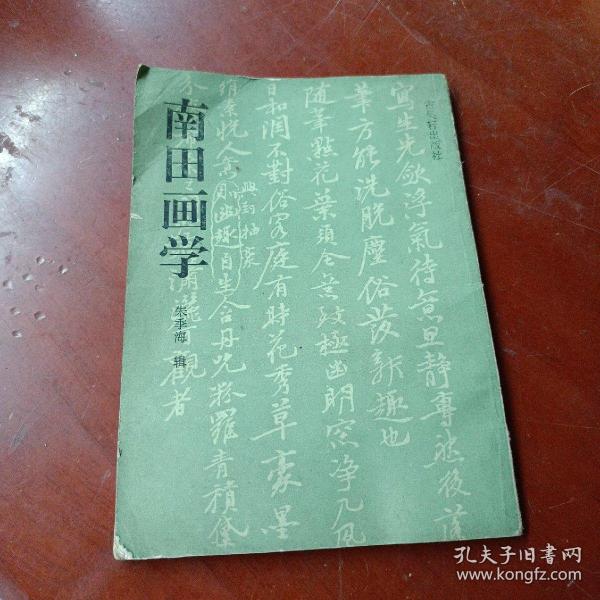 南田画学
朱季海 辑
古吴轩出版社
寫生先斂浮氣待意思靜專然後落
筆方能洗脫塵俗發新趣也
隨筆點花葉須令無致極幽明窓净几風
日和潤不對俗客庭有時花秀草豪墨
絹素悅人寓用幽趣自生合丹吮粉羅青積黛
興到抽裳
滿選觀者
孔夫子旧书网
www.kongfz.com